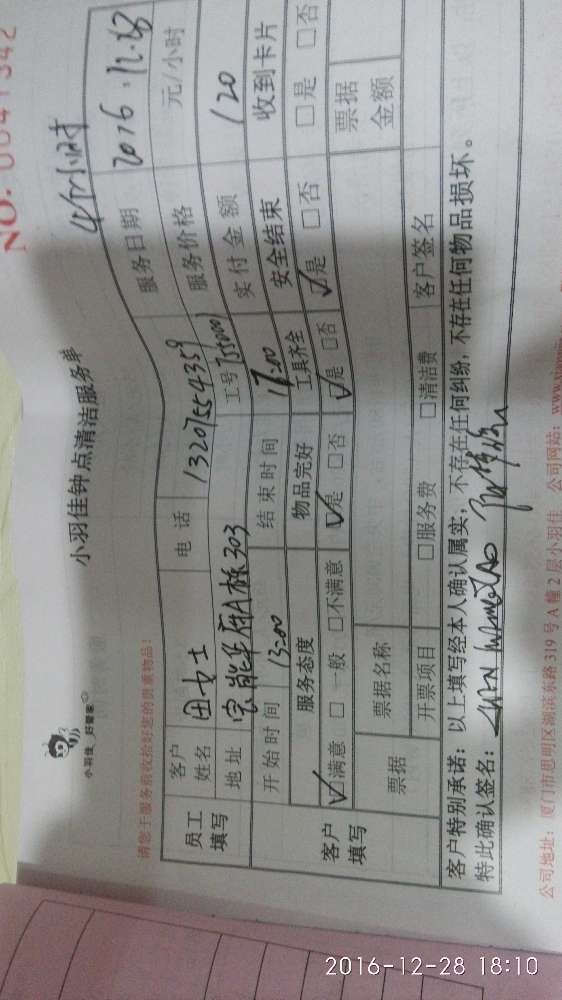 NO. 0041342
小羽佳 好管家
小羽佳钟点清洁服务单
请您于服务前收拾好您的贵重物品！
4个小时
员工填写
客户姓名 田女士 电话 13207554359 服务日期
地址 宝能华府A栋303 工号 服务价格 元/小时
开始时间 13:00 结束时间 17:00 实付金额 120
客户填写
服务态度 物品完好 工具齐全 安全结束 收到卡片
☑满意 □一般 □不满意 ☑是 □否 ☑是 □否 ☑是 □否 □是 □否
票据 票据名称 票据金额
开票项目 □服务费 □清洁费 客户签名
客户特别承诺：以上填写经本人确认属实，不存在任何纠纷，不存在任何物品损坏。
特此确认签名：
公司地址：厦门市思明区湖滨东路319号A幢2层小羽佳 公司网站：www.
2016-12-28 18:10